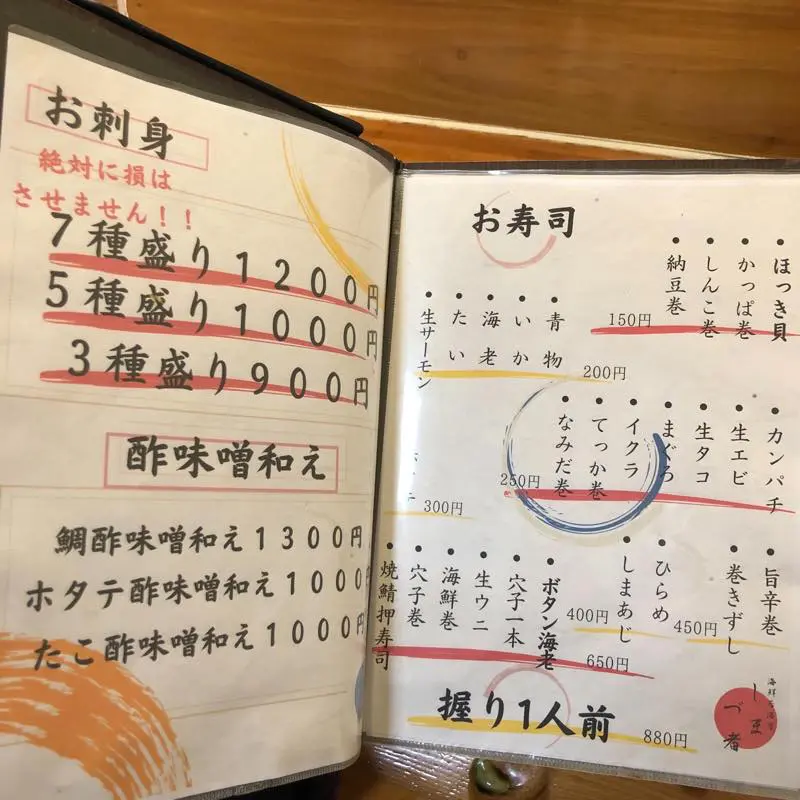 お刺身
絶対に損は
させません！！
7種盛り1200円
5種盛り1000円
3種盛り900円
酢味噌和え
鯛酢味噌和え1300円
ホタテ酢味噌和え1000
たこ酢味噌和え1000円
お寿司
●ほっき貝
●かっぱ巻
●しんこ巻
●納豆巻
150円
●青物
●いか
●海老
●たい
●生サーモン
200円
●カンパチ
●生エビ
●生タコ
●まぐろ
●イクラ
●てっか巻
●なみだ巻
250円
300円
●旨辛巻
●巻きずし
450円
●ひらめ
●しまあじ
400円
●ボタン海老
●穴子一本
●生ウニ
●海鮮巻
●穴子巻
●焼鯖押寿司
650円
握り1人前
880円
しま
づ